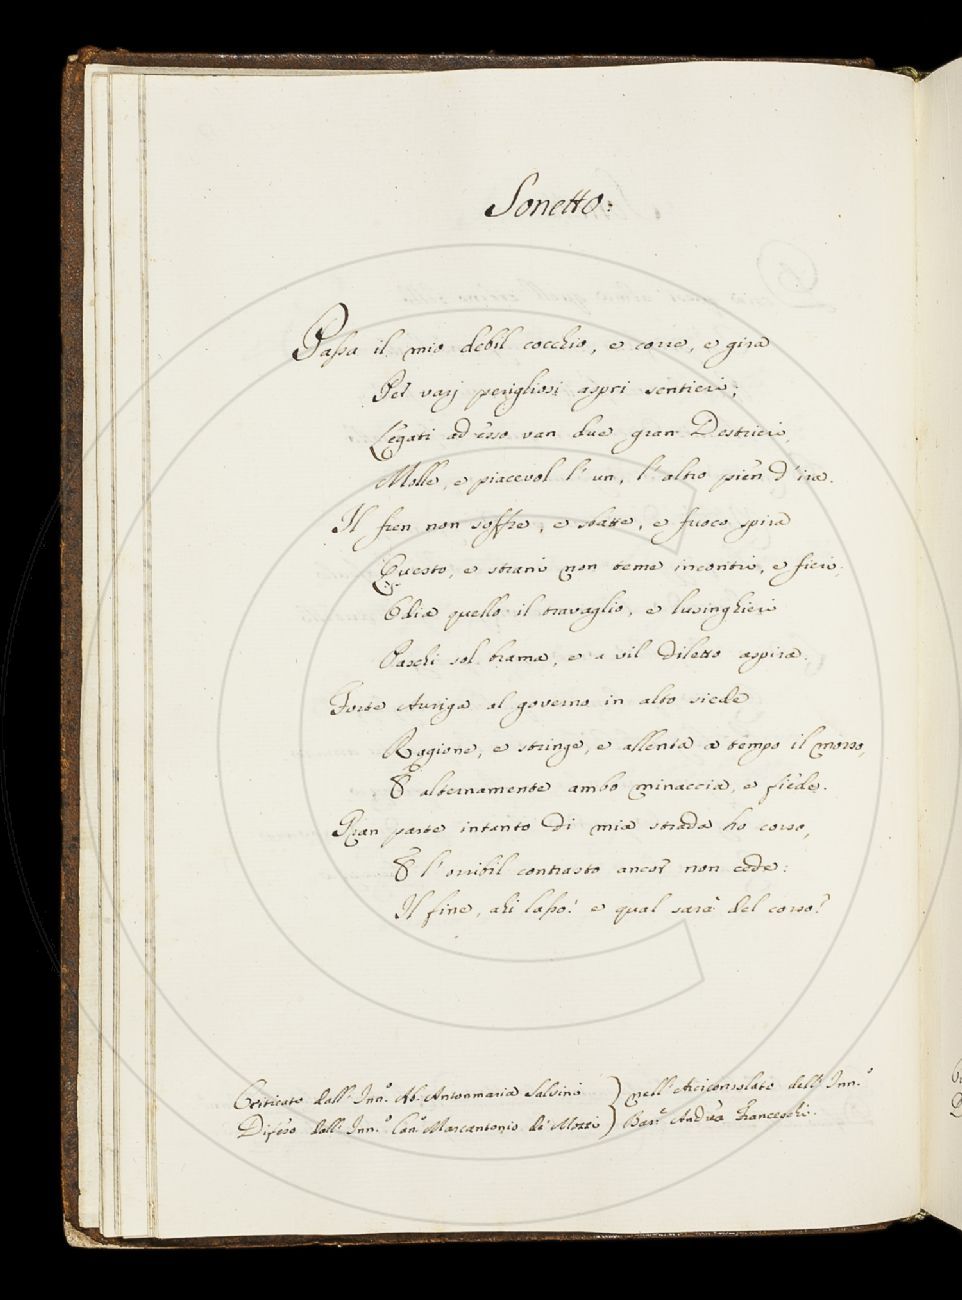 Sonetto:
Passa il mio debil cocchio, e corre, e gira
Pel varj perigliosi aspri sentieri;
Legati ad esso van due gran Destrieri,
Molle, e piacevol l'un, l'altro pien d'ira.
Il fren non soffre, e sbatte, e fuoco spira
Questo, e strani non teme incontri, e fieri;
Odia quello il travaglio, e lusinghieri
Paschi sol brama, e a vil diletto aspira.
Forte Auriga al governo in alto siede
Ragione, e stringe, e allenta a tempo il morso,
E alternamente ambo minaccia, e fiede.
Gran parte intanto di mia strada ho corso,
E l'orribil contrasto ancor non cede:
Il fine, ahi lasso! e qual sarà del corso?
Criticato dall' Inn.º Ab. Antonmaria Salvini } nell' Arciconsolato dell' Inn.º
Difeso dall' Inn.º Can.º Marcantonio de' Mozzi } Bar.e Andrea Franceschi.